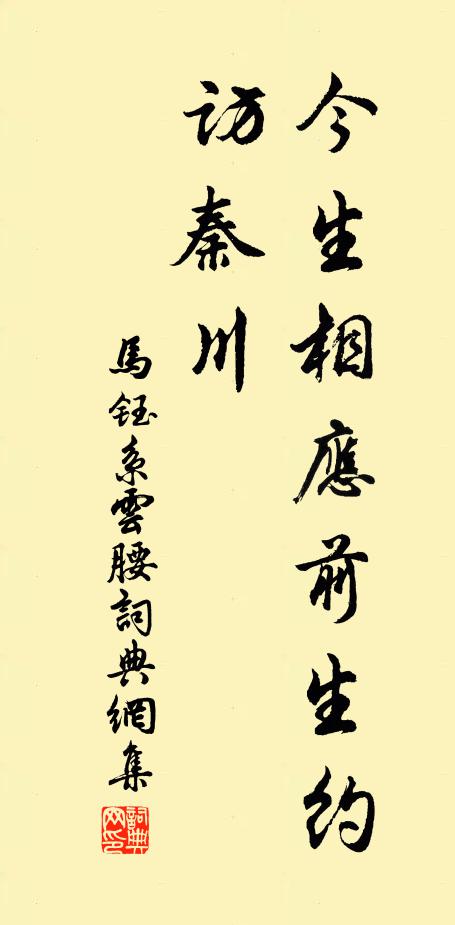 今生相應前生約
訪秦川
馬鈺系雲腰詞典網集
詞典网印